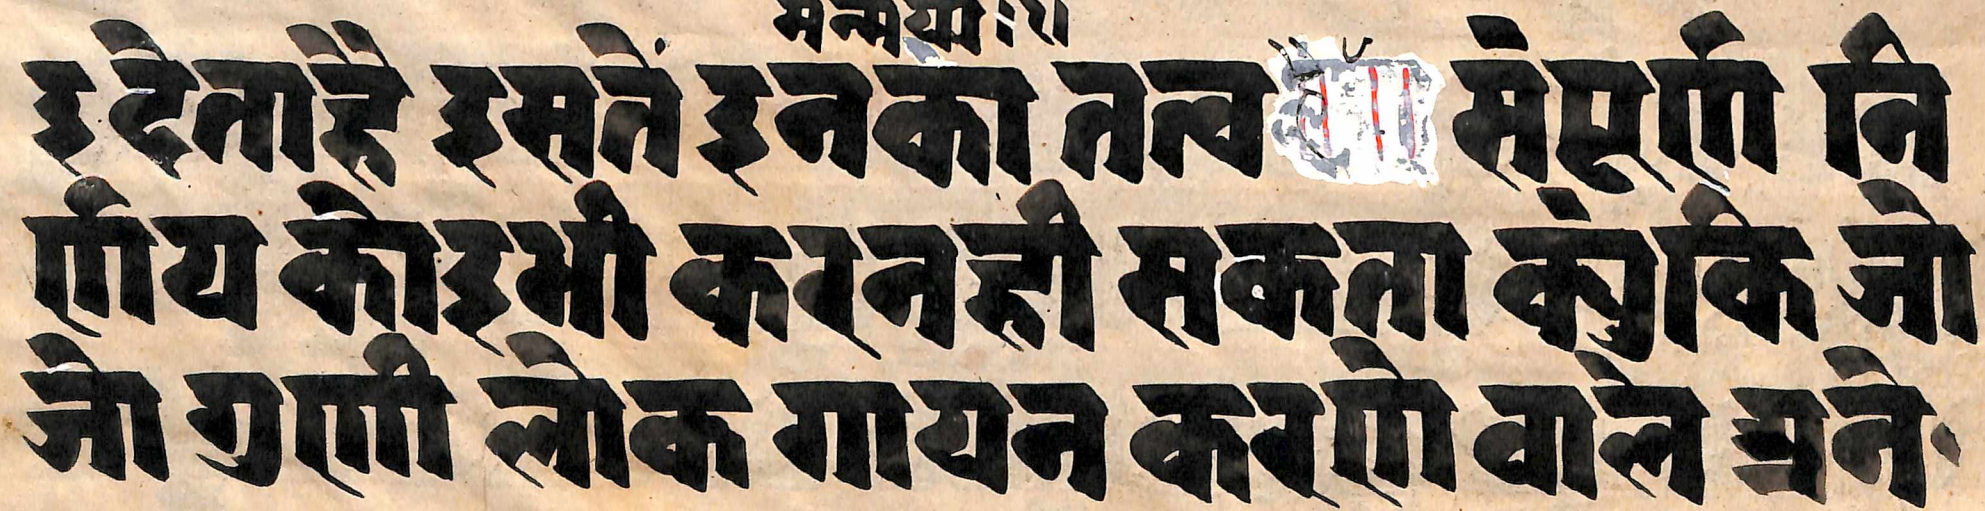 मन्मया:।२।
इ देताहै इसतें इनका तत्व सेपूर्ण नि
र्णय कोइभी करनही सकता कंयुकि जो
जो गुणी लोक गायन करणे वाले प्रने